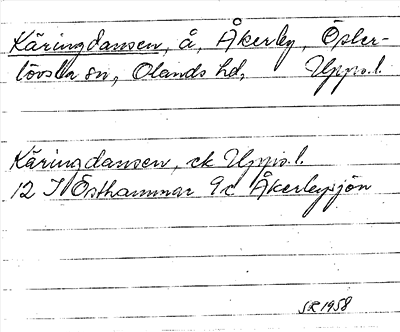 Käringdansen, å, Åkerby, Öster-
lövsta sn, Olands hd, Upps. l.
Käringdansen, ek Upps. l.
12 I Östhammar 9c Åkerbysjön
SR 1958